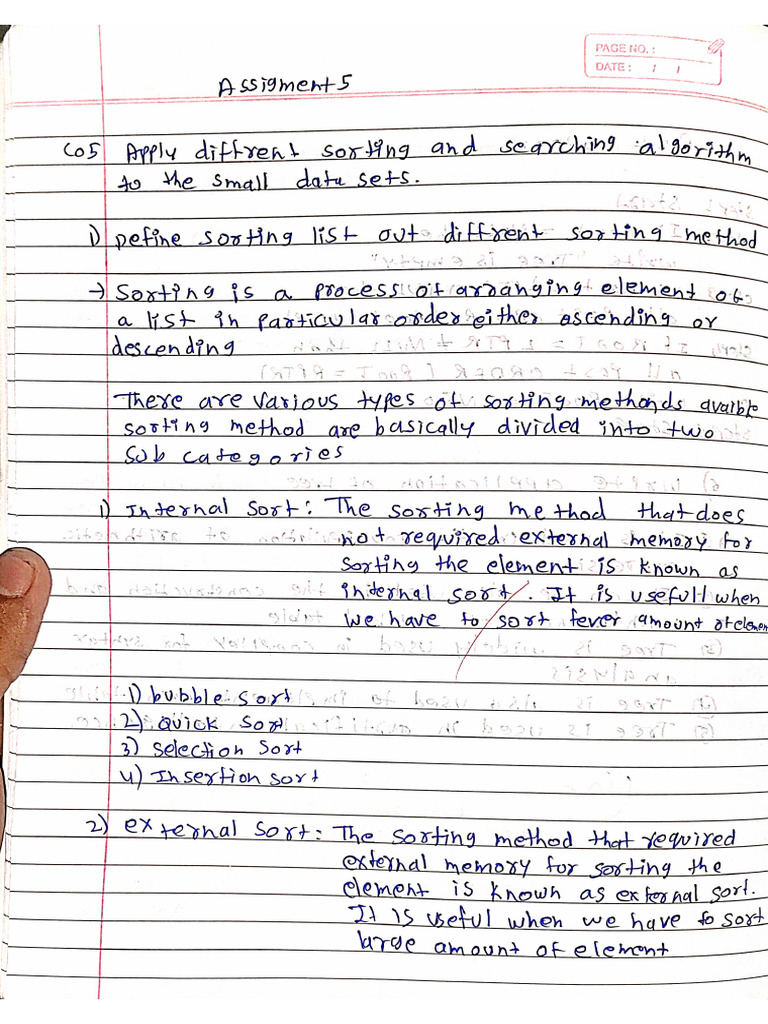 PAGE NO. :
DATE : / /
Assigment 5
CO5 Apply diffrent sorting and searching algorithm
to the small data sets.
1) Define sorting list out diffrent sorting method
→ Sorting is a process of arranging element of
a list in particular order either ascending or
descending
There are various types of sorting methonds avaible
sorting method are basically divided into two
sub categories
1) Internal sort : The sorting method that does
not required external memory for
sorting the element is known as
internal sort. It is usefull when
we have to sort fever amount of elemen
1) bubble sort
2) Quick sort
3) selection sort
4) Insertion sort
2) external sort : The sorting method that required
external memory for sorting the
element is known as external sort.
It is useful when we have to sort
large amount of element